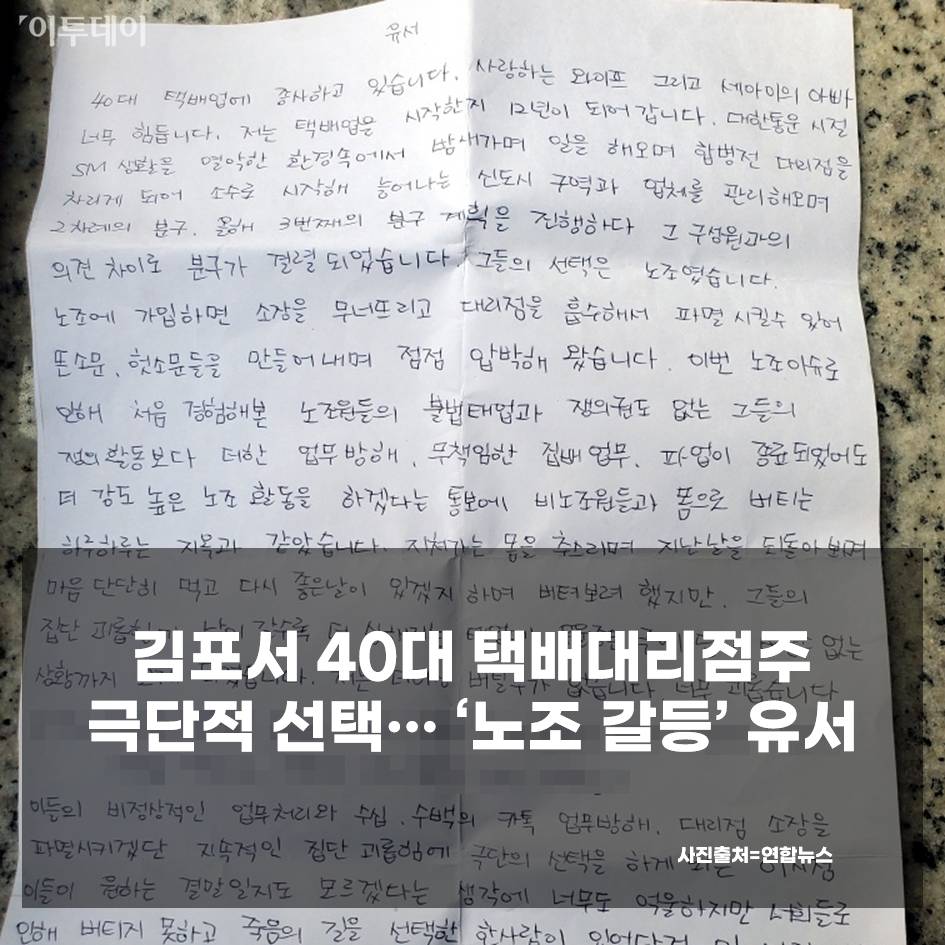 이투데이
유서
40대 택배업에 종사하고 있습니다. 사랑하는 와이프 그리고 세아이의 아빠
너무 힘듭니다. 저는 택배업을 시작한지 12년이 되어 갑니다. 대한통운 시절
SM 생활을 열악한 환경속에서 밤새가며 일을 해오며 합병전 대리점을
차리게 되어 소수로 시작해 늘어나는 신도시 구역과 업체를 관리해오며
2차례의 분구. 올해 3번째의 분구 계획을 진행하다 그 구성원과의
의견 차이로 분구가 결렬되었습니다. 그들의 선택은 노조였습니다.
노조에 가입하면 소장을 무너뜨리고 대리점을 흡수해서 파멸시킬수 있어
뜬소문, 헛소문들을 만들어내며 점점 압박해 왔습니다. 이번 노조이슈로
인해 처음 경험해본 노조원들의 불법태업과 쟁의권도 없는 그들의
쟁의활동보다 더한 업무방해, 무책임한 집배업무, 파업이 종료되었어도
더 강도 높은 노조 활동을 하겠다는 통보에 비노조원들과 몸으로 버티는
하루하루는 지옥과 같았습니다. 지쳐가는 몸을 추스리며 지난날을 되돌아보며
마음 단단히 먹고 다시 좋은날이 있겠지 하며 버텨보려 했지만. 그들의
집단 괴롭힘 없는
상황까지 버틸수가 없습니다 너무 괴롭습니다
김포서 40대 택배대리점주
극단적 선택… ‘노조 갈등’ 유서
이들의 비정상적인 업무처리와 수십. 수백의 카톡 업무방해. 대리점 소장을
파멸시키겠단 지속적인 집단 괴롭힘에 극단의 선택을 하게 되는
사진출처=연합뉴스
이들이 원하는 결말일지도 모르겠다는 생각에 너무도 억울하지만 너희들로
인해 버티지 못하고 죽음의 길을 선택한 한사람이 있었단걸